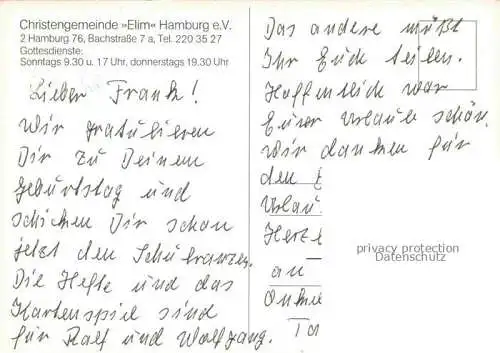 Christengemeinde »Elim« Hamburg e.V.
2 Hamburg 76, Bachstraße 7 a, Tel. 220 35 27
Gottesdienste:
Sonntags 9.30 u. 17 Uhr, donnerstags 19.30 Uhr
Lieber Frank!
Wir gratulieren
Dir zu Deinem
Geburtstag und
schicken Dir schon
jetzt den Schulranzen.
Die Hefte und das
Kartenspiel sind
für Ralf und Wolfgang.
Das andere müßt
Ihr Euch teilen.
Hoffentlich war
Eurer Urlaub schön.
Wir danken für
den
Urlau
Herz
an
Onke
Ta
privacy protection
Datenschutz